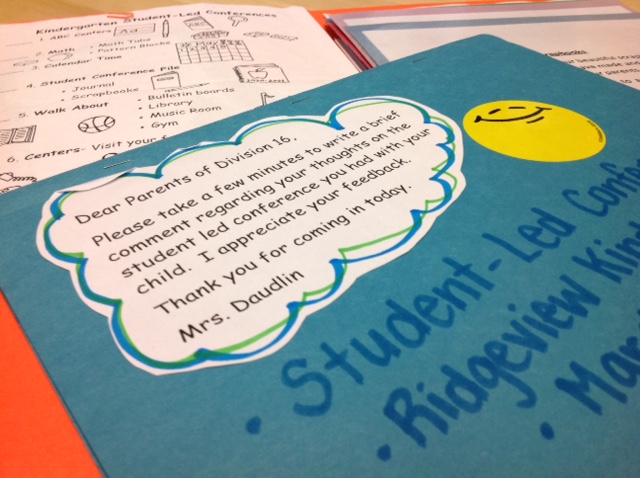 Kindergarten Student-Led Conferences
1. ABC Centers
Aa
2. Math
• Math Tubs
• Pattern Blocks
3. Calendar Time
4. Student Conference File
• Journal
• Scrapbooks
5. Walk About
• Bulletin boards
• Library
• Music Room
• Gym
6. Centers- Visit your
Dear Parents of Division 16,
Please take a few minutes to write a brief
comment regarding your thoughts on the
student led conference you had with your
child. I appreciate your feedback.
Thank you for coming in today.
Mrs. Daudlin
• Student-Led
• Ridgeview
•